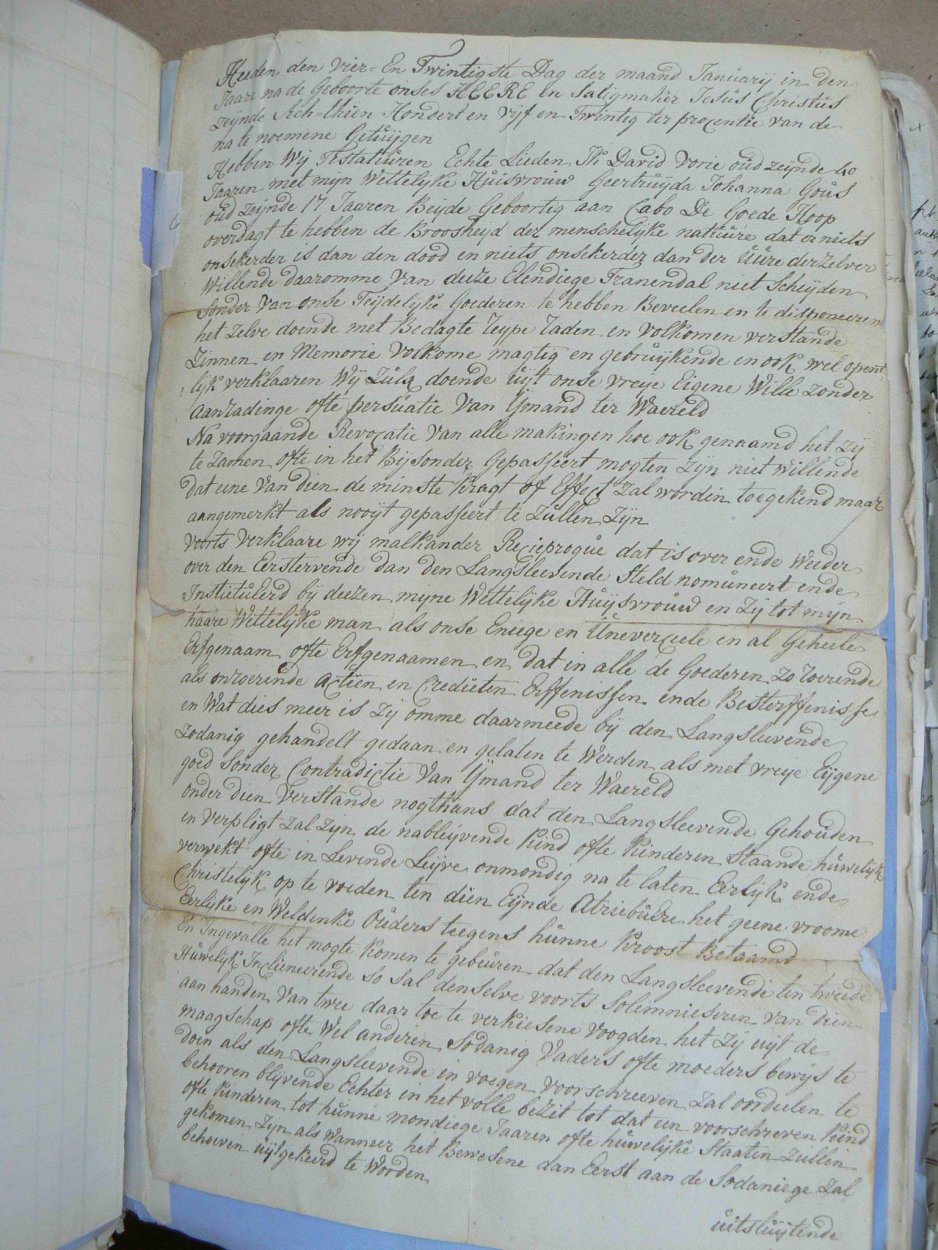 Heeden den vier-En Twintigste Dag der maand Januarij in den
Jaare na de Geboorte onses HEERE en Saligmaker Jesus Christus
zeynde Ach-thien Hondert en vijf en Twintig ter precentie van de
na te noemene Getuijgen
Hebben Wij Testatuuren Echte Lieden Th David Vorie oud zeijnde 40
Jaaren met mijn Wettelijke Huisvrouw Geertruijda Johanna Gous
oud zeijnde 17 Jaaren Beijde Geboortig aan Cabo De Goede Hoop
overdagt te hebben de Broosheyd der menschelijke nathure dat er niets
onsekerder is dan den dood en niets onsekerder dan der Uure derzelver
Willende daaromme van deeze Elendiege Tranendal niet Scheijden
Sonder van onse Teijdelijke Goederen te hebben Beveelen en te disponeeren
het Zelve doende met Bedagte Zeype Zaden en volkomen verstande
Zinnen en Memorie volkome magtig en gebruijkende en ook wel opent
lijk verklaaren Wij Zulx doende uijt onse vreye Eigene Wille zonder
Aanradinge ofte persuatie van Ymand ter Waereld
Na voorgaande Revocatie van alle makingen hoe ook genaamd het zij
te Zamen ofte in het Bijsonder Gepasseert mogten zijn niet willende
dat eene van dien de minste Kragt of Effect zal worden toegekend maar
aangemerkt als nooijt gepasseert te Zullen zijn
voorts verklaare wij malkander Recieproque dat is over ende Weeder
over den Eerstervende dan den Langsleevende Steld nomuneert ende
Instietuleerd bij deezen myne Wettelijke Huijsvrouw en Zij tot mijn
haare Wettelijke man als onse Eniege en Uneverzeele en al Geheele
Erfgenaam ofte Erfgenaamen en dat in alle de Goederen zo roerende
als onroerende actien en Credieten Erffenissen ende Besterffenisse
en Wat dies meer is Zij omme daarmeede bij den Langsleevende
Zodanig gehandelt gedaan en gelaten te Werden als met vreye Eijgene
goed Sonder Contradictie van Ymand ter Waereld
onder dien Verstande nogthans dat den Langsleevende Gehouden
en verpligt zal zijn de nablijvende Kind ofte Kinderen Staande huwelijk
verwekt ofte in Levende Leijve onmondig na te laten Eerlijk ende
Christelijk op te voeden ten dien Eijnde Atriebuere het geene vroome
Eerlijke en Weldenke Ouders teegens hunne Kroost Betaamd
En Ingevalle het mogte komen te gebeuren dat den Langsleevende ten tweede
Huwelijk Inclieneerende so sal denselve voorts Solemnieseren van dien
aan handen van twee daar toe te verkiesene voogden het zij uyt de
maagschap ofte Wel anderen Sodanig Vaders ofte moeders bewijs te
doen als den Langsleevende in voegen voorschreeven zal oordeelen te
behooren blijvende Echter in het volle bezit tot dat een voorschreven Kind
ofte Kinderen tot hunne mondiege Jaaren ofte huwelijke Staaten Zullen
gekomen zijn als wanneer het Bewesene dan Eerst aan de Sodaniege zal
behoeven uijtgekeerd te Worden
uitsluijtende